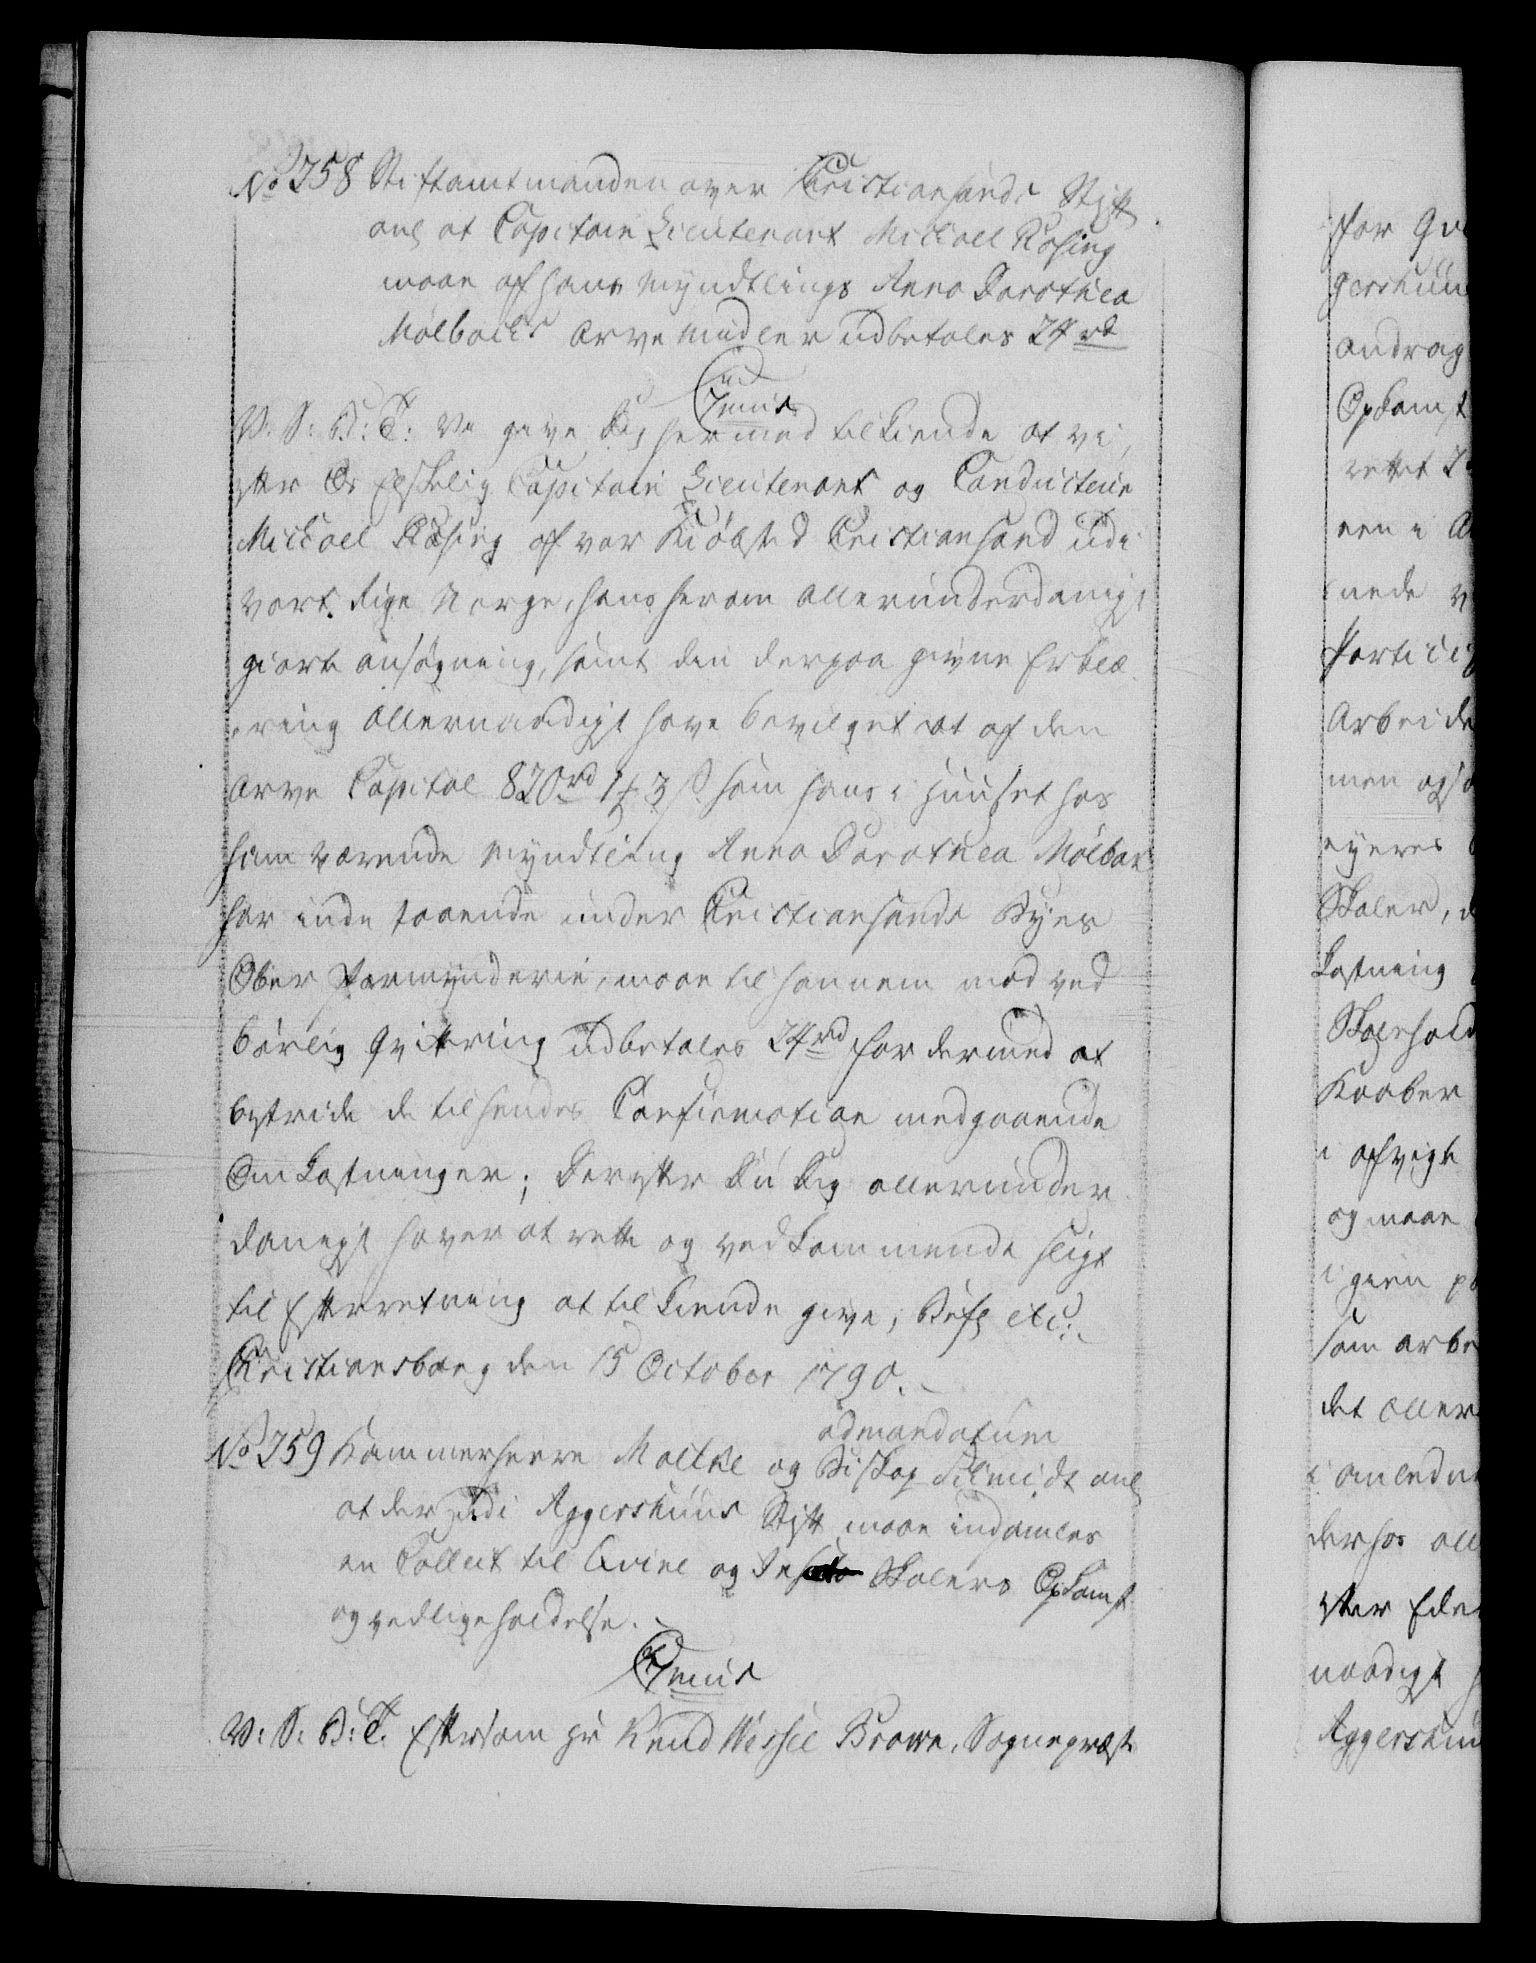 No 258 Stiftamtmanden over Christiansands Stift
anl at Capitain Lieutenant Michael Rosing
maae af hans Myndtlings Anna Dorothea
Mølbachs Arve Midler udbetales 24 rd
C 7 mus
V. S: G: T: Vi give Dig hermed tilkiende at vi,
efter Os Elskelig Capitain Lieutenant og Conducteur
Michael Rosing af vor Kiøbsted Christiansand udi
vort Rige Norge, hans herom allerunderdanigst
giorte ansøgning, samt den derpaa givne Erklæ
ring Allernaadigst have bevilget at af den
Arve Capital 820 rd 1 ₰ 3 s som hans i Huuset hos
ham værende Myndtling Anna Dorothea Mølbach
har inde staaende under Christiansands Byes
Ober Formynderie, maae til hannem mod ved
børlig Qvittering udbetales 24 rd for dermed at
bestride de til hendes Confirmation medgaaende
Omkostninger; Derefter Du Dig allerunder
danigst haver at rette og vedkommende sligt
til Efterretning at tilkiende give, Befl etc:
Christiansborg den 15 October 1790.
admandatum
No 259 Kammerherre Moltke og Biskop Schmidt anl
at der udi Aggershuus Stift maae indsamles
en Collect til Qvine og Skolers Opkomst
og vedligeholdelse.
C 7 mus
V: S: G: T. Eftersom Hr Knud Wessel Brown, Sognepræst
for
gershuu
andrag
Opkomst
rettet
een i
nede
Partici
Arbeide
men ogsaa
eyeres
Skoler,
kostning
Skolehold
Kaaber
i afvigte
og maae
i gien
som arbe
det aller
i anledn
derhos all
efter Eder
naadigst
Aggershuu